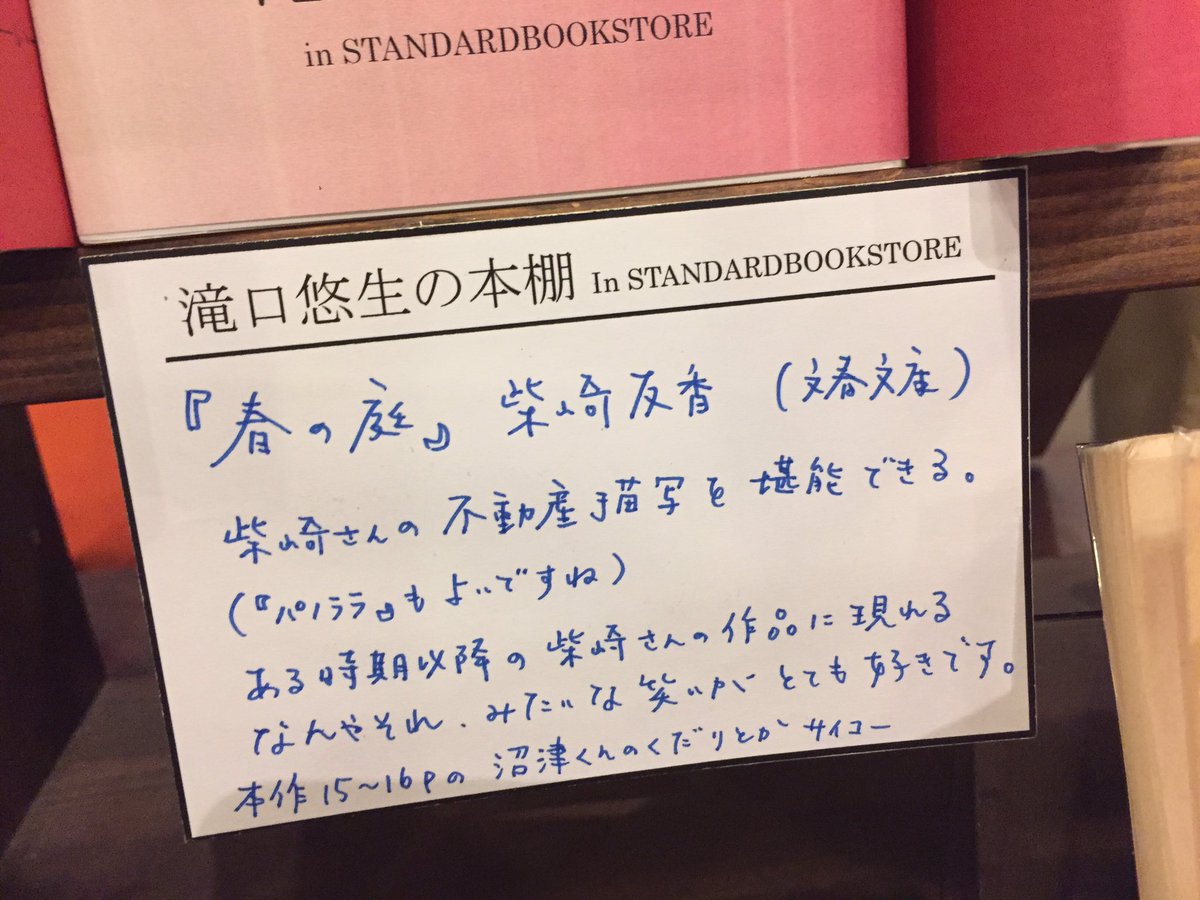 in STANDARDBOOKSTORE
滝口悠生の本棚 In STANDARDBOOKSTORE
『春の庭』 柴崎友香 (文春文庫)
柴崎さんの不動産描写を堪能できる。
(『パノララ』もよいですね)
ある時期以降の柴崎さんの作品に現れる
なんやそれ、みたいな笑いがとても好きです。
本作15~16pの沼津くんのくだりとかサイコー